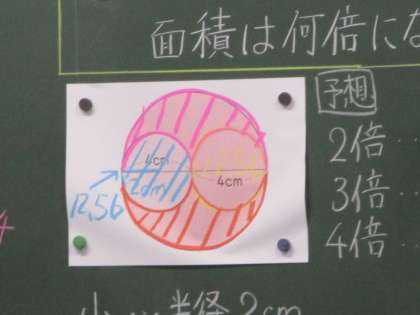 面積は何倍にな
予想
2倍…
3倍
4倍…
4cm
4cm
2cm
12.56
4
小…半径2cm